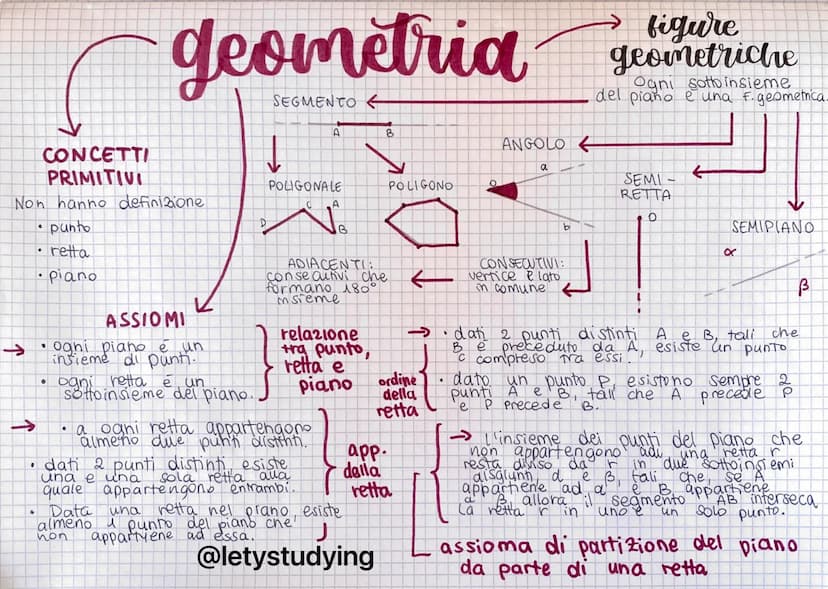 geometria
figure
geometriche
Ogni sottoinsieme
del piano è una F. geometrica.
SEGMENTO
A B
CONCETTI
PRIMITIVI
Non hanno definizione
• punto
• retta
• piano
POLIGONALE
D C A B
POLIGONO
ANGOLO
a
O
b
SEMI-
RETTA
O
SEMIPIANO
α
β
ADIACENTI:
consecutivi che
formano 180°
insieme
CONSECUTIVI:
vertice e lato
in comune
ASSIOMI
→ • ogni piano é un
insieme di punti.
• ogni retta é un
sottoinsieme del piano.
relazione
tra punto,
retta e
piano
→ • a ogni retta appartengono
almeno due punti distinti.
• dati 2 punti distinti esiste
una e una sola retta alla
quale appartengono entrambi.
• Data una retta nel piano, esiste
almeno 1 punto del piano che
non appartiene ad essa.
app.
della
retta
ordine
della
retta
→ • dati 2 punti distinti A e B, tali che
B è preceduto da A, esiste un punto
C compreso tra essi.
• dato un punto P, esistono sempre 2
punti A e B, tali che A precede P
e P precede B.
→ L'insieme dei punti del piano che
non appartengono ad una retta r
resta diviso da r in due sottoinsiemi
disgiunti α e β, tali che, se A
appartiene ad α e B appartiene
a β allora il segmento AB interseca
la retta r in uno e un solo punto.
assioma di partizione del piano
da parte di una retta
@letystudying